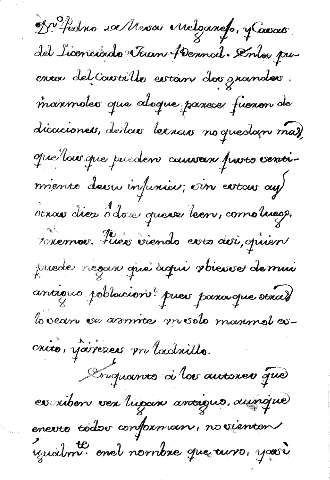 Dn. Pedro de Mesa Melgarejo, y Casas
del Licenciado Juan Bernal. En la pu-
erta del Castillo estan dos grandes
marmoles que aloque parece fueron de
dicaciones, delas letras no quedan mas,
que las que pueden causar justo senti-
miento de su injuria; sin estas ay
otras diez ó doze que se leen, como luego
veremos. Pues siendo esto asi, quien
puede negar que aqui vbiesse de mui
antiguo poblacion? pues para que otras
lo sean se admite vn solo marmol es-
crito, y à vezes vn ladrillo.
En quanto à los autores que
escriben ser lugar antiguo, aunque
en esto todos conforman, no vienen
igualmte. en el nombre que tuvo, y asi